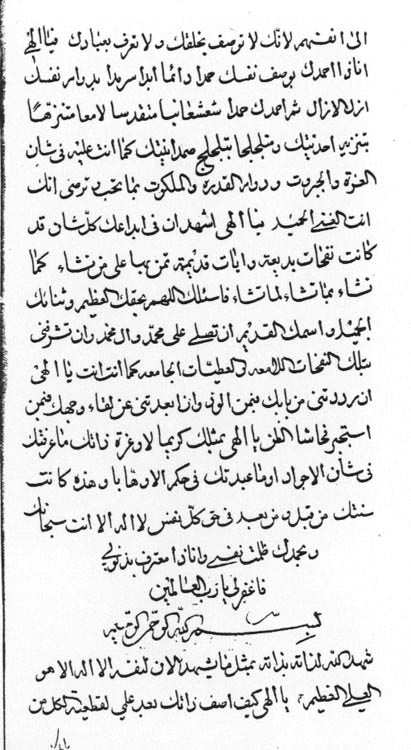 الی انفسهم لانك لا توصف بخلقك ولا تعرف بعبادك فیا الهی
انا ذا احمدك بوصف نفسك حمدا دائما ابدا سرمدا بدوام نفسك
ازل الازال ثم احمدك حمدا شعشعانیا متقدسا لامعا متنزها
بتنزیه احدیتك و متجلجلا بتجلجل صمدانیتك كما انت علیه فی شأن
العزة والجبروت و دوام القدرة والملكوت بما تحب و ترضی انك
انت الغنی الحمید فیا الهی اشهد ان فی ابداعك كل شأن قد
كانت نفحات بدیعة و ایات قدیمة تمن بها علی من تشاء كما
تشاء بما تشاء لما تشاء فاسئلك اللهم بحقك العظیم و ثنائك
الجمیل و اسمك القدیم ان تصلی علی محمد و ال محمد وان تشرفنی
بتلك النفحات اللامعة فی العطیات الجامعة كما انت انت یا الهی
ان رددتنی من بابك فبمن الوذ وان ابعدتنی عن لقاء وجهك فبمن
استجیر فحاشا الظن یا الهی بمثلك كریما لا وعزة ذاتك ما عرفتك
فی شأن الا جراد او ما عبدتك فی حكم الا وهابا وهذه كانت
سنتك من قبل و من بعد فی حق كل نفس لا اله الا انت سبحانك
و بحمدك ظلمت نفسی و انا ذا معترف بذنوبی
فاغفر لی یا رب العالمین
بسم الله الرحمن الرحیم
شهد الله لذاته بذاته بمثل ما یشهد الان لنفسه الا اله الا هو
العلی العظیم یا الهی كیف اصف ذاتك بعد علمی لقطعیة الكل من